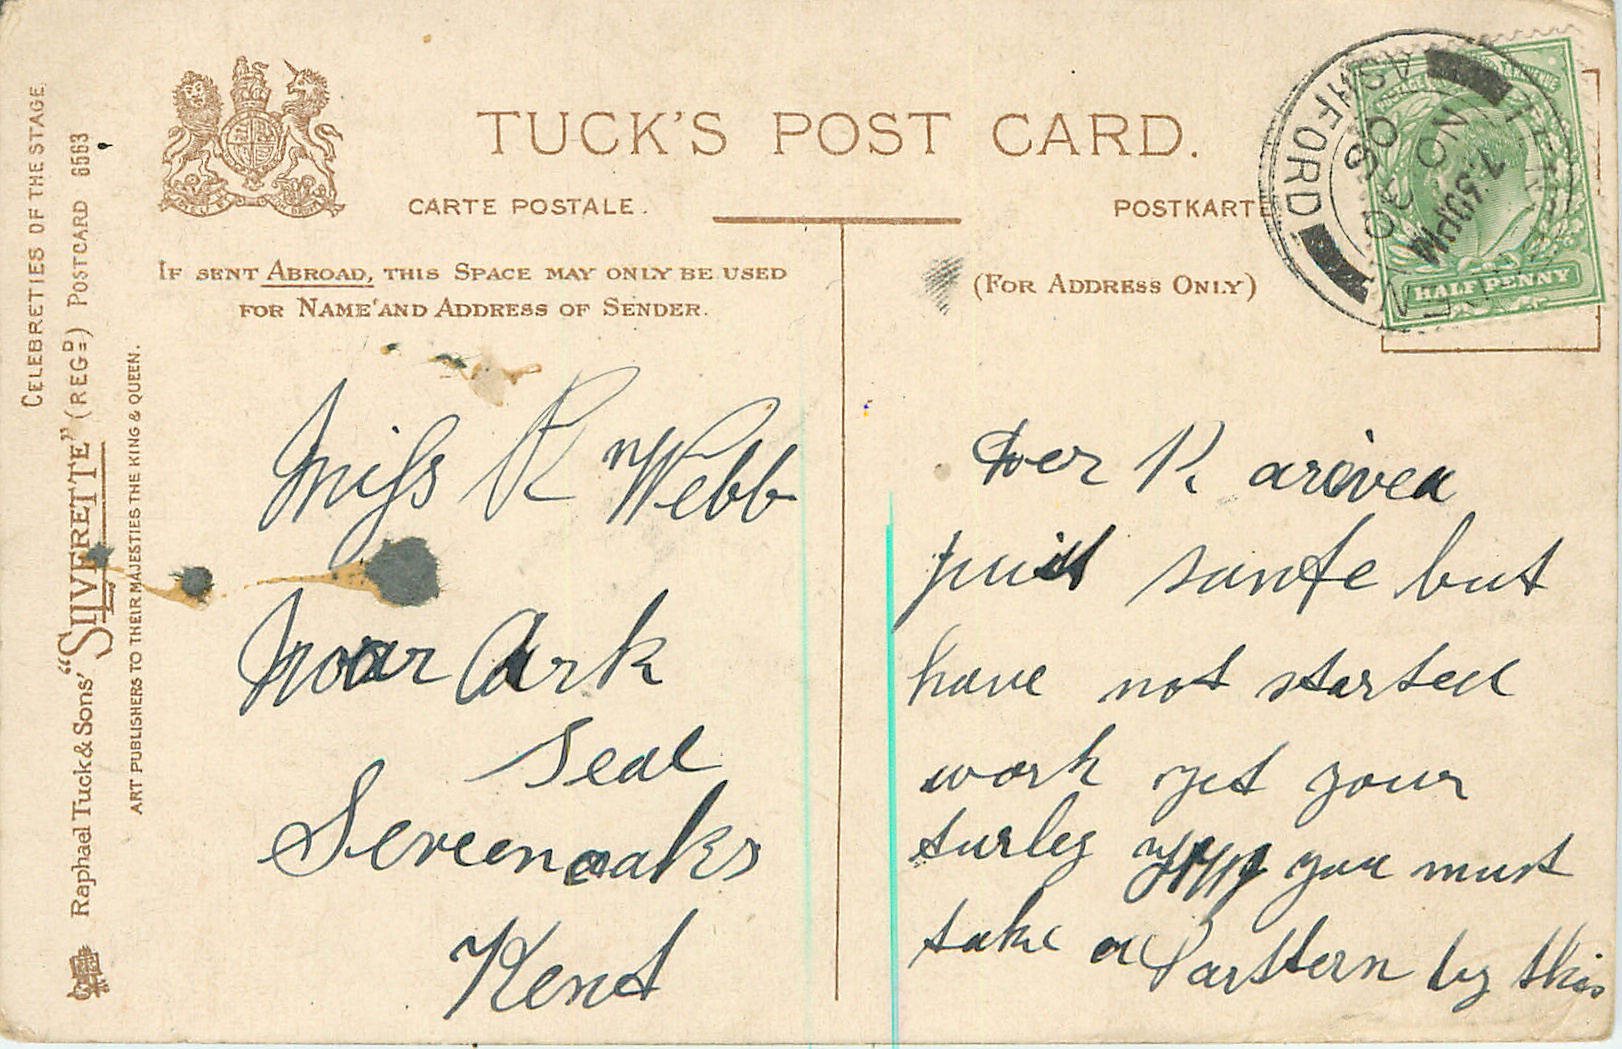 CELEBRETIES OF THE STAGE
Raphael Tuck & Sons' "SILVERETTE" (REGD.) POSTCARD 6563
ART PUBLISHERS TO THEIR MAJESTIES THE KING & QUEEN.
TUCK'S POST CARD.
CARTE POSTALE.
POSTKARTE
IF SENT ABROAD, THIS SPACE MAY ONLY BE USED
FOR NAME AND ADDRESS OF SENDER.
(FOR ADDRESS ONLY)
ASHFORD
7.30PM
NO 30
06
HALF PENNY
Miss R Webb
Noar Ark
Seal
Sereenoaks
Kent
Deer R arived
quit sanfe but
have not started
work yet your
turley you must
take a Parttern by this